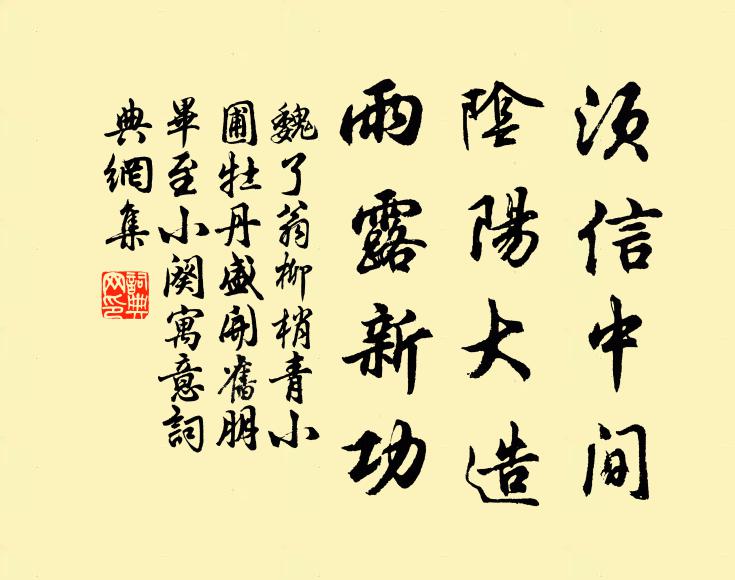 須信中間
陰陽大造
雨露新功
魏了翁柳梢青小
圃牡丹盛開舊朋
畢至小闋寓意詞
典網集
詞典
网印